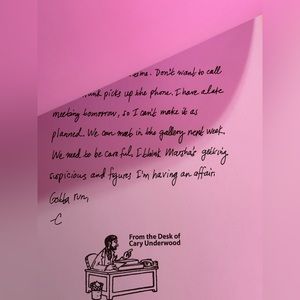 me. Don't want to call
picks up the phone. I have a late
meeting tomorrow, so I can't make it as
planned. We can meet in the gallery next week.
We need to be careful. I think Marsha's getting
suspicious and figures I'm having an affair.
Gotta run,
-C
From the Desk of
Cary Underwood